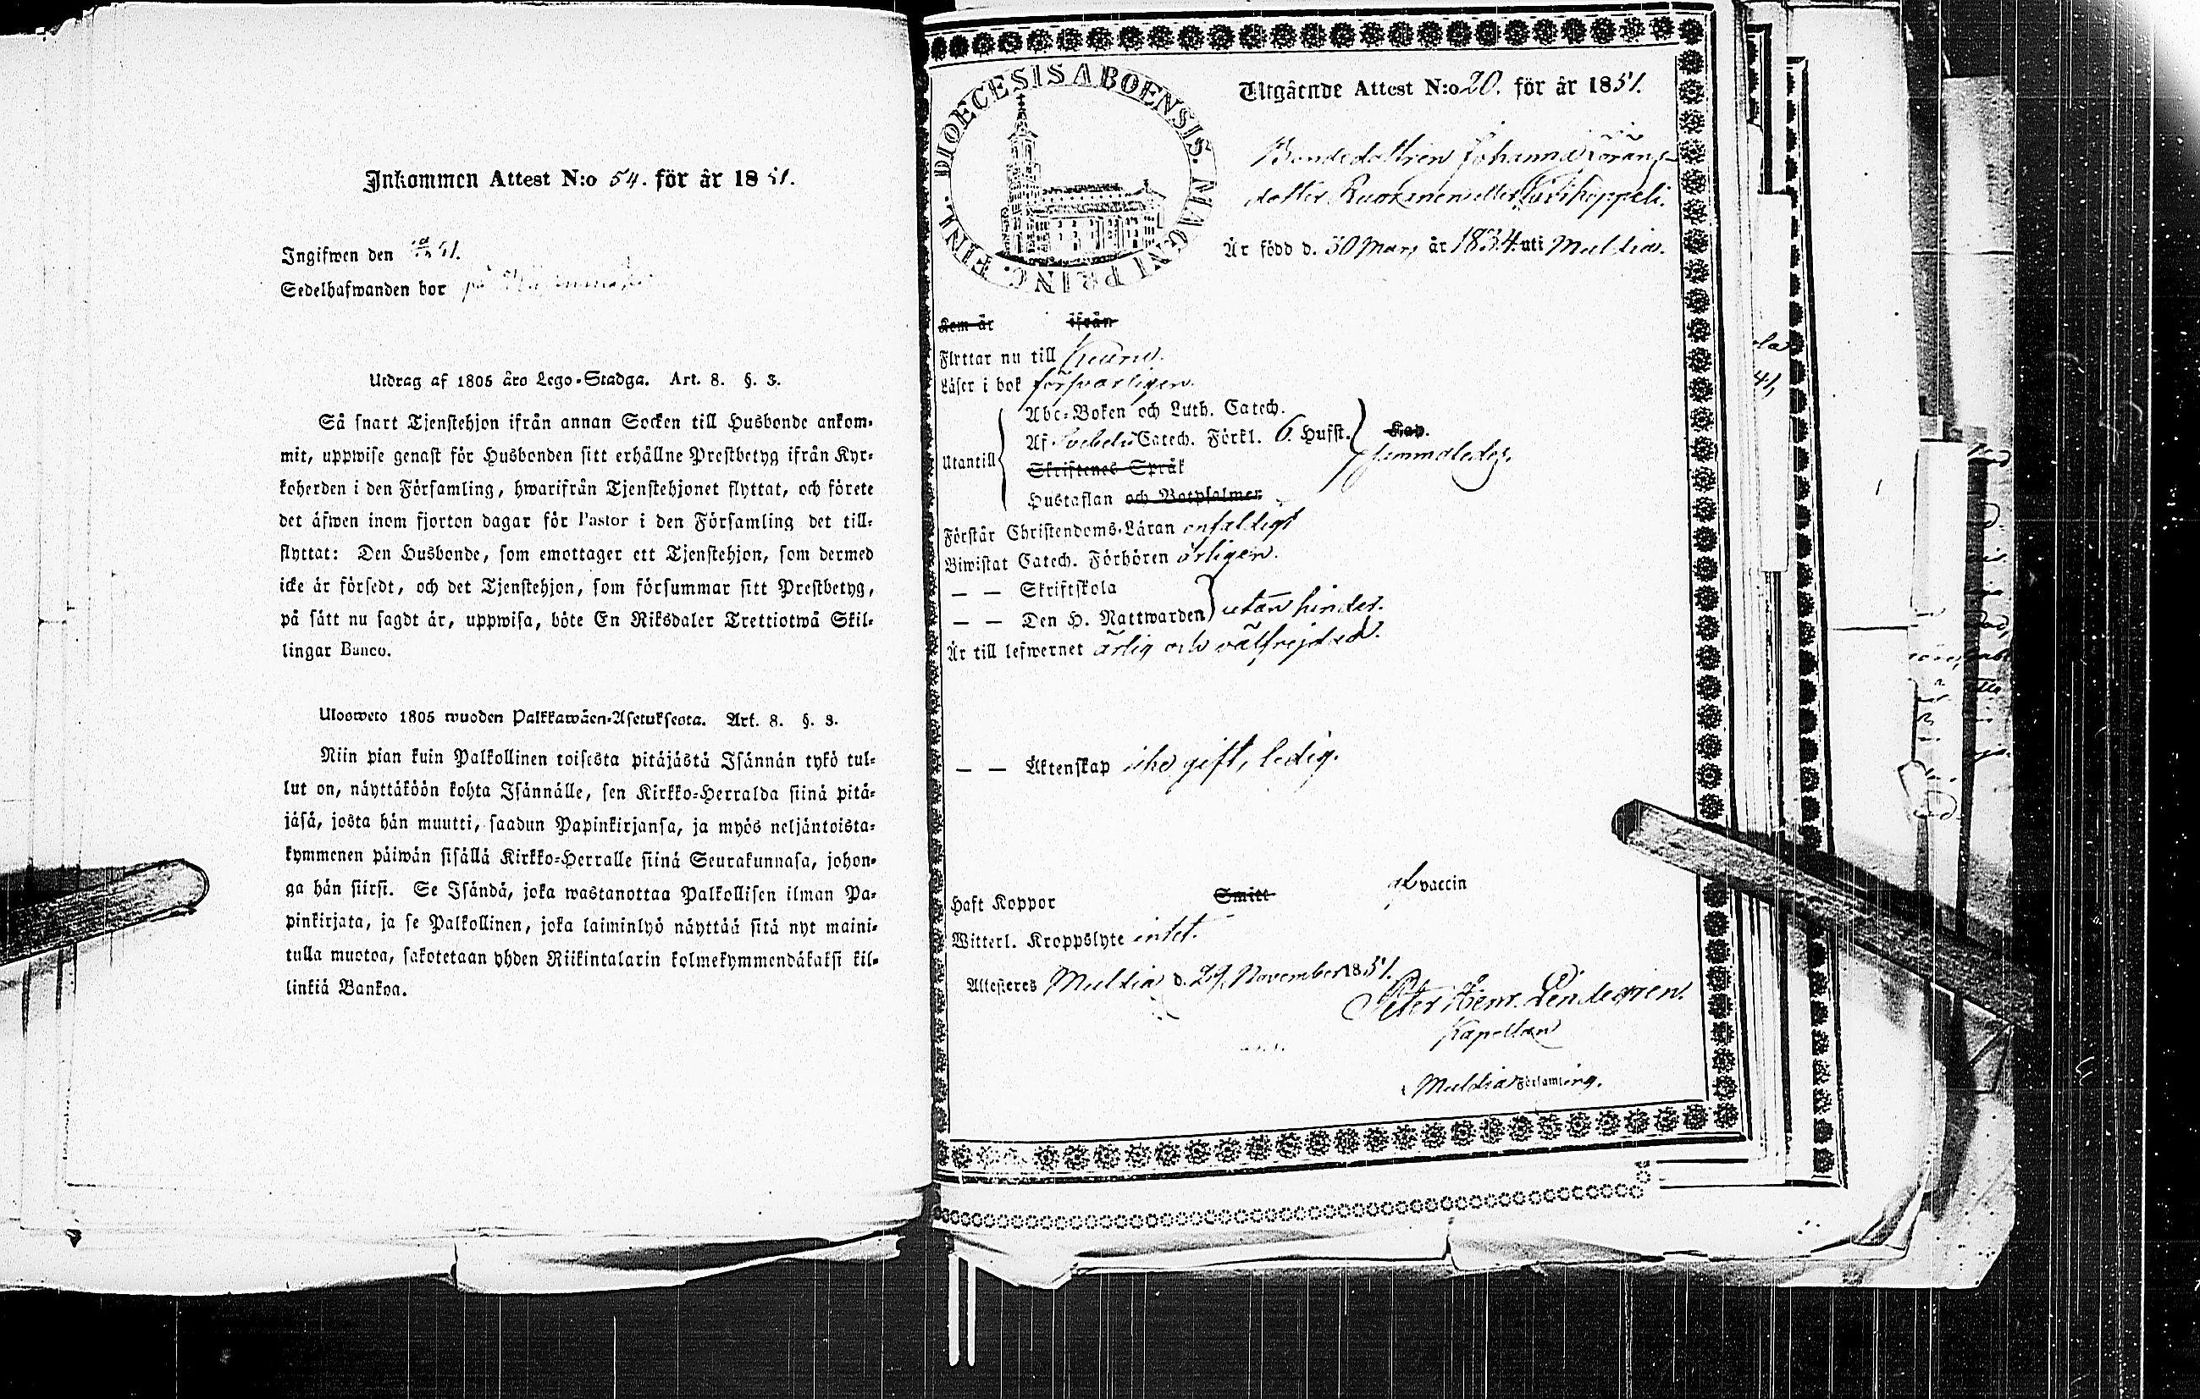 Inkommen Attest N:o 54. för år 1851.
Ingifwen den
Sedelhafwanden bor på
Utdrag af 1805 års Lego-Stadga. Art. 8. §. 3.
Så snart Tjenstehjon ifrån annan Socken till Husbonde ankom-
mit, uppwise genast för Husbonden sitt erhållne Prestbetyg ifrån Kyr-
koherden i den Församling, hwarifrån Tjenstehjonet flyttat, och förete
det äfwen inom fjorton dagar för Pastor i den Församling det till-
flyttat: Den Husbonde, som emottager ett Tjenstehjon, som dermed
icke är försedt, och det Tjenstehjon, som försummar sitt Prestbetyg,
på sätt nu sagdt är, uppwisa, böte En Riksdaler Trettiotwå Skil-
lingar Banco.
Ulosweto 1805 wuoden Palkkawäen-Asetuksesta. Art. 8. §. 3.
Niin pian kuin Palkollinen toisesta pitäjästä Isännän tykö tul-
lut on, näyttäköön kohta Isännälle, sen Kirkko-Herralda siinä pitä-
jäsä, josta hän muutti, saadun Papinkirjansa, ja myös neljäntoista-
kymmenen päiwän sisällä Kirkko-Herralle siinä Seurakunnasa, johon-
ga hän siirsi. Se Isändä, joka wastanottaa Palkollisen ilman Pa-
pinkirjata, ja se Palkollinen, joka laiminlyö näyttää sitä nyt maini-
tulla muotoa, sakotetaan yhden Riikintalarin kolmekymmendäkaksi kil-
linkiä Bankoa.
DIOECESIS ABOENSIS. MAGNI PRINC. FINL.
Utgående Attest N:o 20. för år 1851.
Bondedottren Johanna Göran s
dotter Ruokinen eller
Är född d. 30 Mars år 1834 uti Multia.
Kem är ifrån
Flyttar nu till Keuru.
Läser i bok försvarligen.
Abc-Boken och Luth. Catech.
Utantill Af Svebelii Catech. Förkl. 6. Hufst. Kap.
Skriftenes Språk
Hustaflan och Botpsalmer
Förstår Christendoms-Läran enfaldigt
Biwistat Catech. Förhören årligen.
— — Skriftskola
— — Den H. Nattwarden utan hinder.
Är till lefwernet ärlig och välfrejdad.
— — Äktenskap icke gift, ledig.
Haft Koppor Smitt vaccin
Witterl. Kroppslyte intet.
Attesteres Multia d. 29. November 1851.
Peter Henr. Lindegren.
Kapellan
Multia Församling.